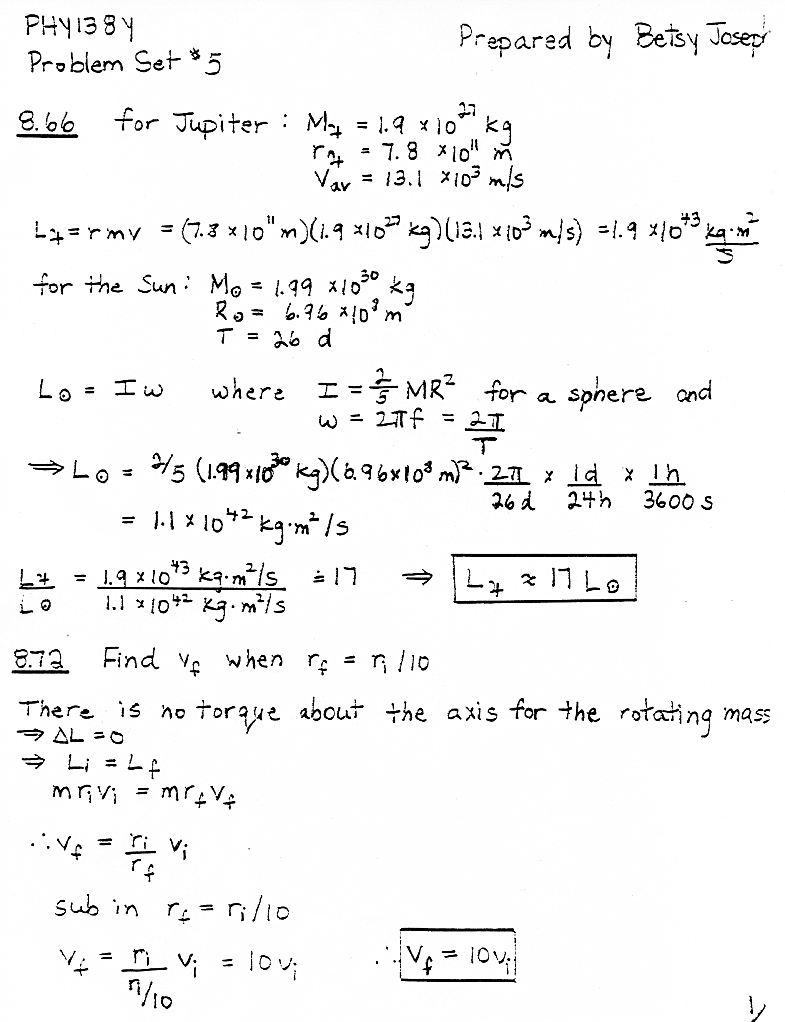 PHY138Y
Prepared by Betsy Joseph
Problem Set #5
8.66 for Jupiter : M♃ = 1.9 × 10²⁷ kg
r♃ = 7.8 × 10¹¹ m
Vav = 13.1 × 10³ m/s
L♃ = r m v = (7.8 × 10¹¹ m)(1.9 × 10²⁷ kg)(13.1 × 10³ m/s) = 1.9 × 10⁴³ kg·m²/s
for the Sun : M⊙ = 1.99 × 10³⁰ kg
R⊙ = 6.96 × 10⁸ m
T = 26 d
L⊙ = I ω where I = 2/5 MR² for a sphere and
ω = 2πf = 2π/T
⇒ L⊙ = 2/5 (1.99 × 10³⁰ kg)(6.96 × 10⁸ m)² · 2π/26d × 1d/24h × 1h/3600 s
= 1.1 × 10⁴² kg·m²/s
L♃/L⊙ = 1.9 × 10⁴³ kg·m²/s / 1.1 × 10⁴² kg·m²/s ≐ 17 ⇒ L♃ ≈ 17 L⊙
8.72 Find vf when rf = ri /10
There is no torque about the axis for the rotating mass
⇒ ΔL = 0
⇒ Li = Lf
m ri vi = m rf vf
∴ vf = ri/rf vi
sub in rf = ri/10
vf = ri/(ri/10) vi = 10 vi ∴ vf = 10vi
1/